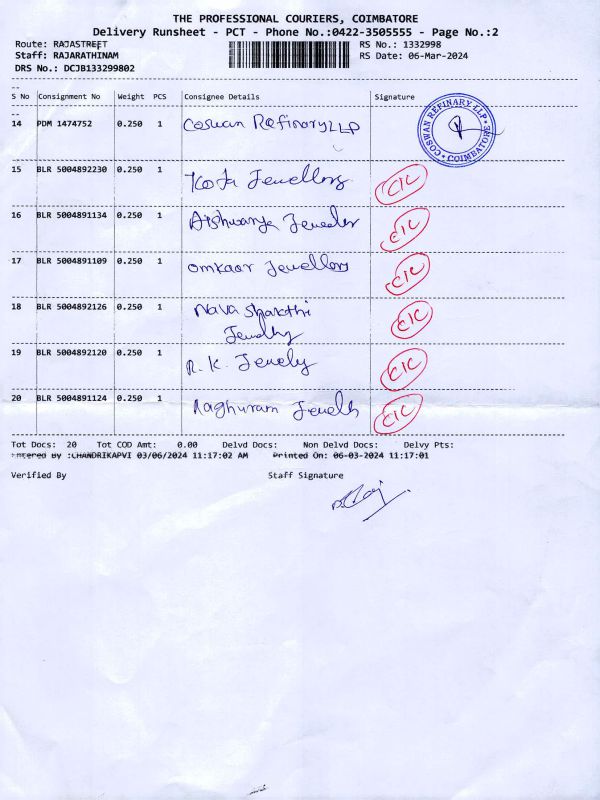 THE PROFESSIONAL COURIERS, COIMBATORE
Delivery Runsheet - PCT - Phone No.:0422-3505555 - Page No.:2
Route: RAJASTREET RS No.: 1332998
Staff: RAJARATHINAM RS Date: 06-Mar-2024
DRS No.: DCJB133299802
S No Consignment No Weight PCS Consignee Details Signature
14 PDM 1474752 0.250 1 Coswan Refinary LLP
COSWAN REFINARY LLP * COIMBATORE *
15 BLR 5004892230 0.250 1 Kota Jewellery CIC
16 BLR 5004891134 0.250 1 Aishwarya Jeweller CIC
17 BLR 5004891109 0.250 1 Omkaar Jewellery CIC
18 BLR 5004892126 0.250 1 Nava Sharthi CIC
Jewellry
19 BLR 5004892120 0.250 1 R. K. Jewely CIC
20 BLR 5004891124 0.250 1 Raghuram Jewells CIC
Tot Docs: 20 Tot COD Amt: 0.00 Delvd Docs: Non Delvd Docs: Delvy Pts:
Entered By :CHANDRIKAPVI 03/06/2024 11:17:02 AM Printed On: 06-03-2024 11:17:01
Verified By Staff Signature